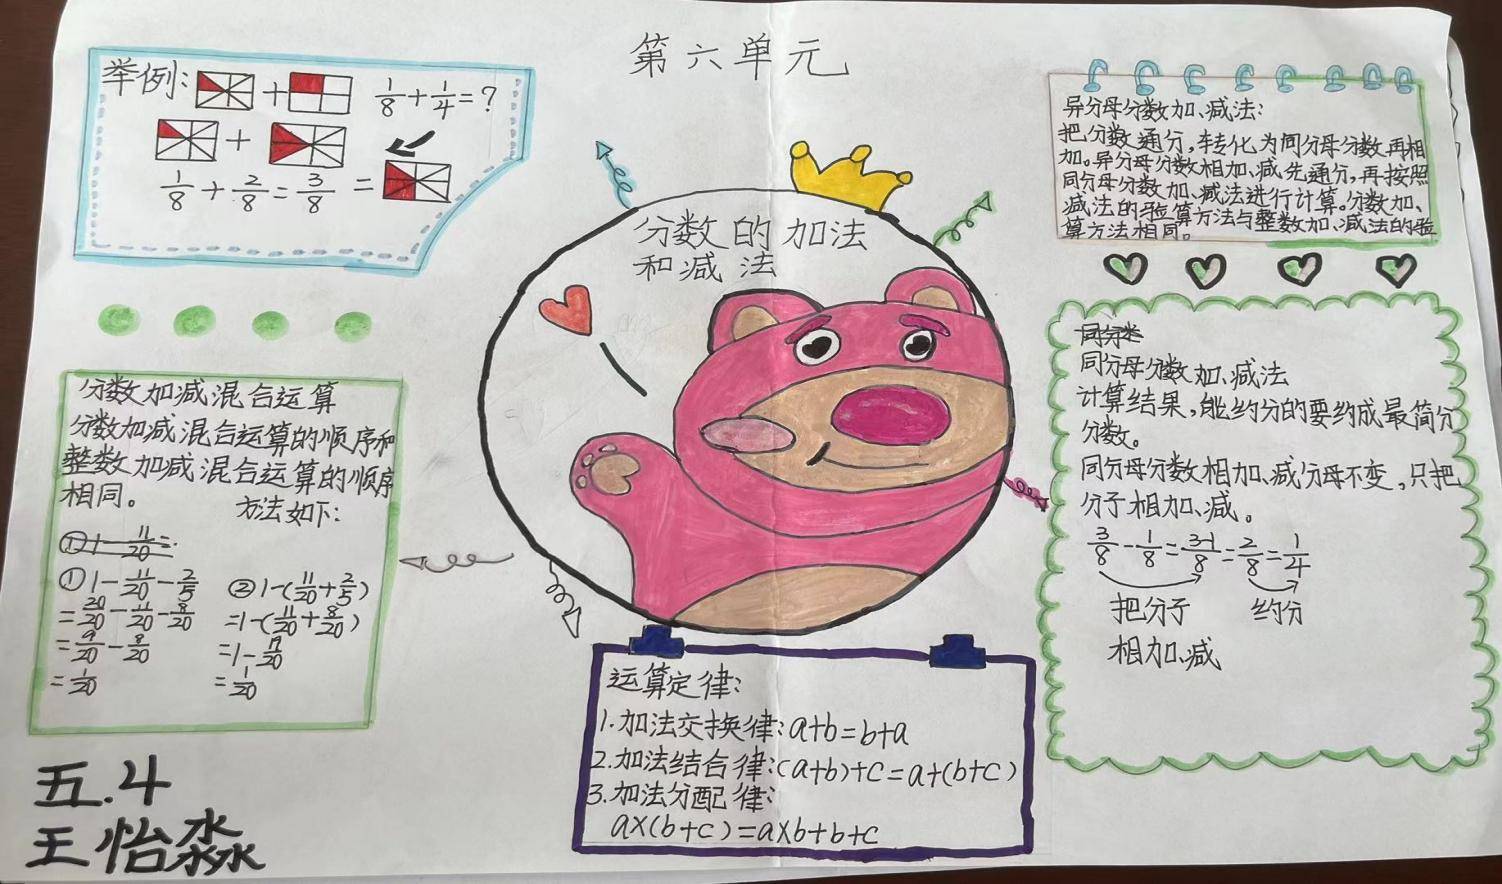 第六单元
举例:
1/8+1/4=?
1/8+2/8=3/8=
分数的加法
和减法
异分母分数加、减法:
把分数通分,转化为同分母分数再相
加。异分母分数相加、减先通分,再按照
同分母分数加、减法进行计算。分数加、
减法的验算方法与整数加、减法的验
算方法相同。
分数加减混合运算
分数加减混合运算的顺序和
整数加减混合运算的顺序
相同。
方法如下:
①1-11/20=
①1-11/20-2/5
=20/20-11/20-8/20
=9/20-8/20
=1/20
②1-(11/20+2/5)
=1-(11/20+8/20)
=1-19/20
=1/20
同分母分数加、减法
计算结果,能约分的要约成最简分
分数。
同分母分数相加、减分母不变,只把
分子相加、减。
3/8-1/8=3-1/8=2/8=1/4
把分子 约分
相加、减
运算定律:
1.加法交换律:a+b=b+a
2.加法结合律:(a+b)+c=a+(b+c)
3.加法分配律:
a×(b+c)=a×b+b+c
五.4
王怡淼